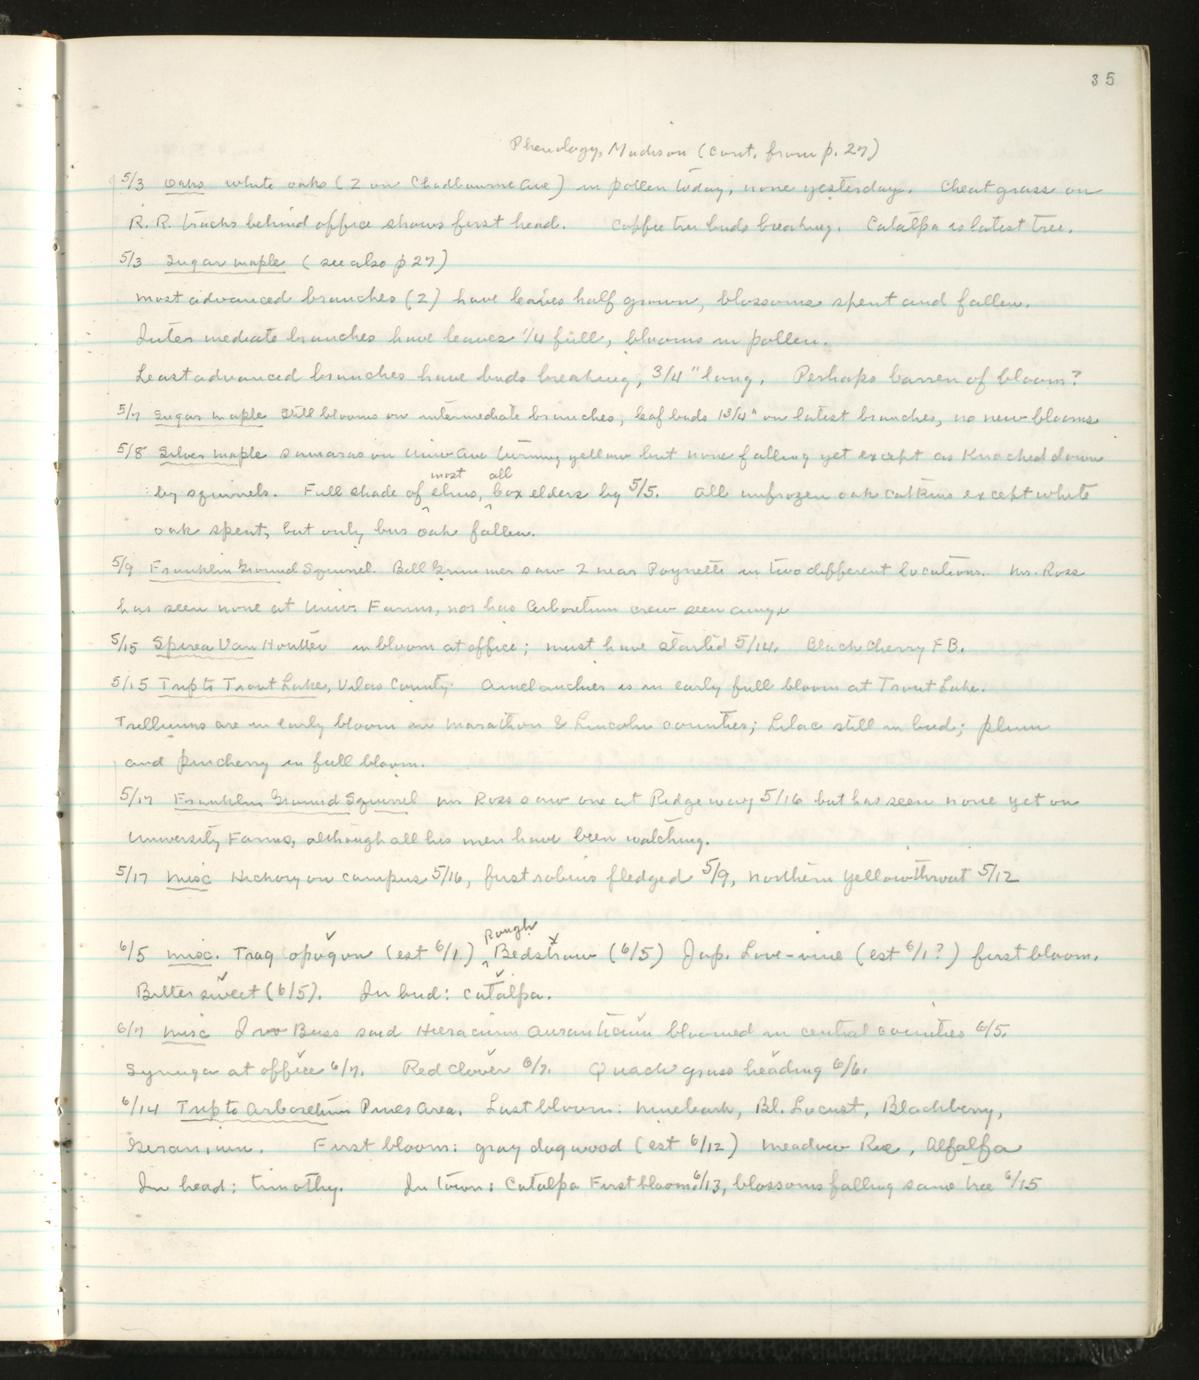 35
Phenology, Madison (cont. from p. 27)
5/3 Oaks white oaks (2 on Chadbourne Ave) in pollen today, none yesterday. Cheat grass on
R. R. tracks behind office shows first head. Coffee tree buds breaking. Catalpa is latest tree.
5/3 Sugar maple (see also p 27)
Most advanced branches (2) have leaves half grown, blossoms spent and fallen.
Intermediate branches have leaves 1/4 full, blooms in pollen.
Least advanced branches have buds breaking, 3/4" long. Perhaps barren of bloom?
5/7 Sugar maple Still blooms on intermediate branches, leaf buds 1 3/4" on latest branches, no new blooms
5/8 Silver maple samaras on Univ Ave turning yellow but none falling yet except as knocked down
most all
by squirrels. Full shade of elms, box elders by 5/5. All unfrozen oak catkins except white
oak spent, but only bur oak fallen.
5/9 Franklin Ground Squirrel. Bill Grimmer saw 2 near Poynette in two different locations. Mr. Ross
has seen none at Univ. Farms, nor has Arboretum crew seen any.
5/15 Spirea Van Houttei in bloom at office; must have started 5/14. Black Cherry FB.
5/15 Trip to Trout Lake, Vilas County. Amelanchier is in early full bloom at Trout Lake.
Trilliums are in early bloom in Marathon & Lincoln counties; Lilac still in bud; plum
and pincherry in full bloom.
5/17 Franklin Ground Squirrel Mr Ross saw one at Ridgeway 5/16 but has seen none yet on
University Farms, although all his men have been watching.
5/17 Misc Hickory on campus 5/16, first robins fledged 5/9, northern yellowthroat 5/12
Rough
6/5 Misc. Tragopogon (est 6/1) Bedstraw (6/5) Jap. Love-vine (est 6/1?) first bloom.
Bittersweet (6/5). In bud: catalpa.
6/7 Misc Irv Buss said Hieracium aurantiacum bloomed in central counties 6/5.
Syringa at office 6/7. Red clover 6/7. Quack grass heading 6/6.
6/14 Trip to Arboretum Pines Area. Last bloom: ninebark, Bl. Locust, Blackberry,
Geranium. First bloom: gray dogwood (est 6/12) Meadow Rue, Alfalfa
In head: timothy. In town: Catalpa First bloom 6/13, blossoms falling same tree 6/15